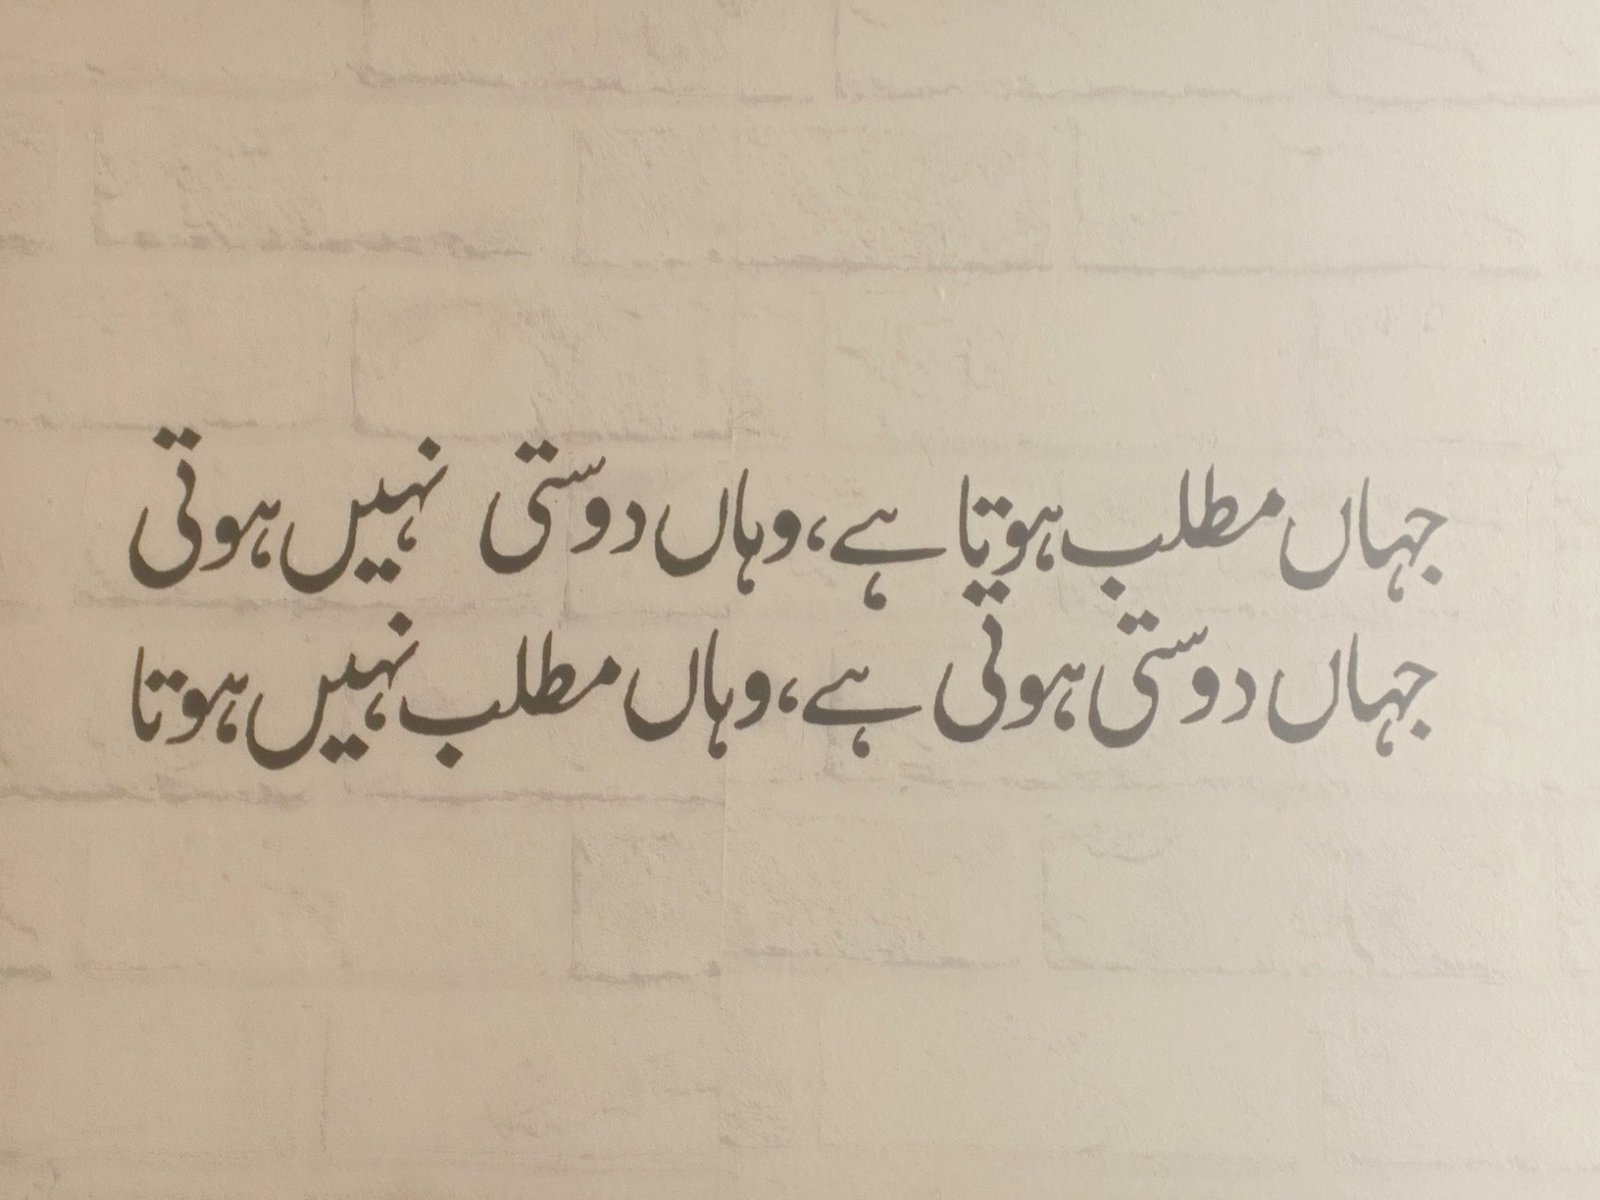 جہاں مطلب ہوتا ہے، وہاں دوستی نہیں ہوتی
جہاں دوستی ہوتی ہے، وہاں مطلب نہیں ہوتا